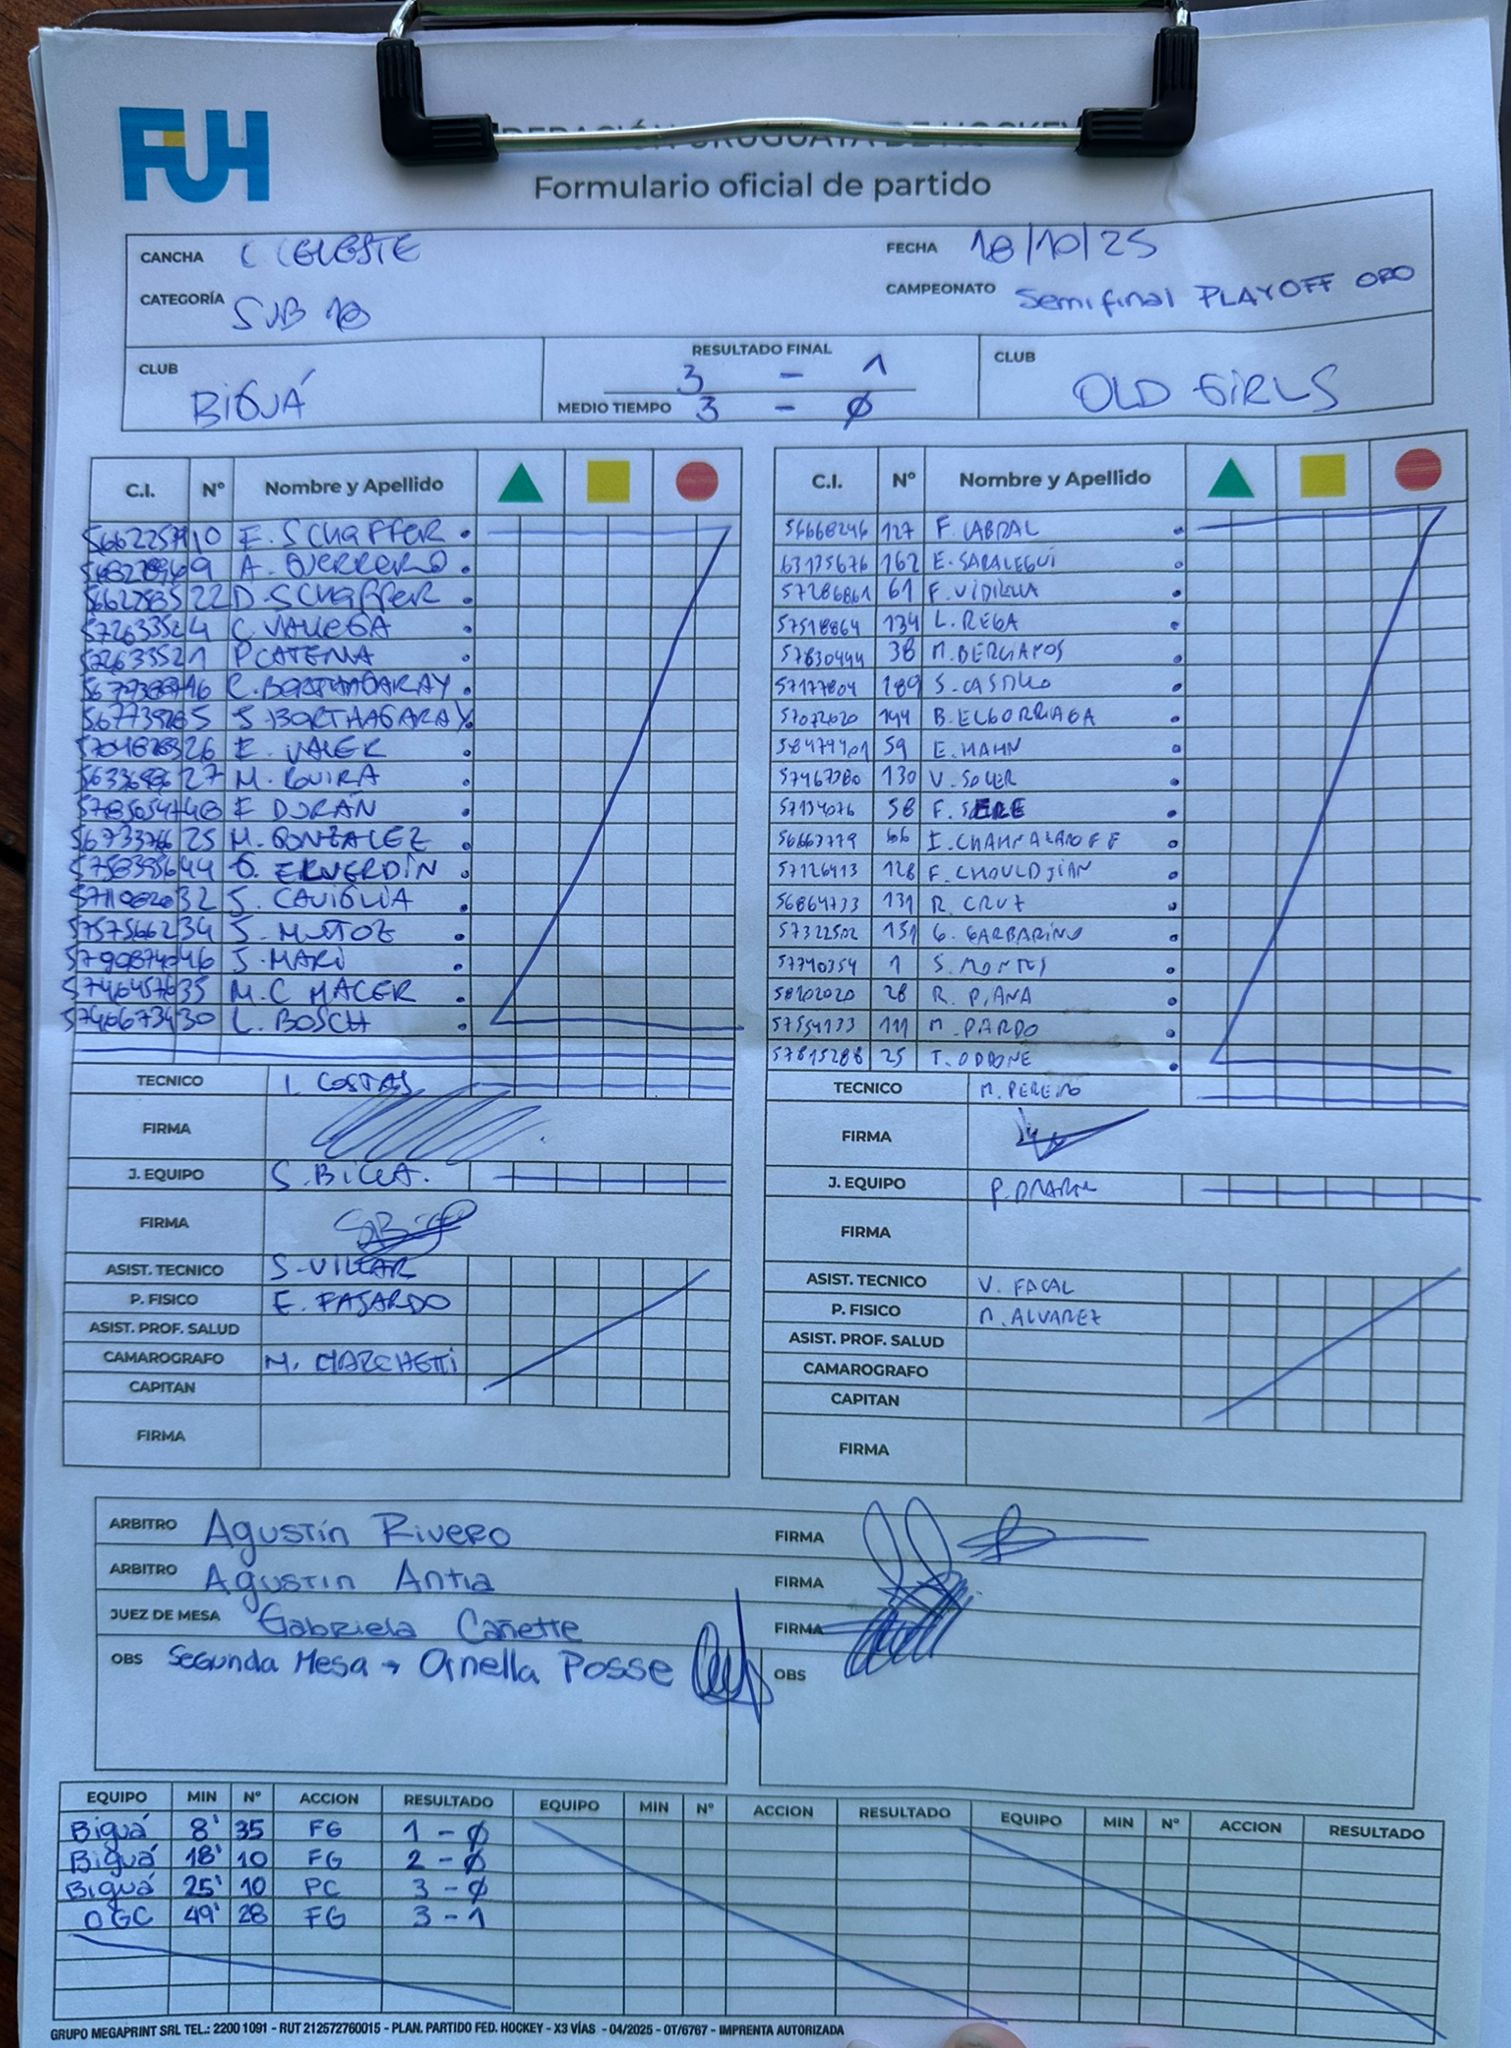 FUH
Formulario oficial de partido
CANCHA C CELESTE FECHA 18/10/25
CATEGORÍA SUB 18 CAMPEONATO Semifinal PLAYOFF ORO
CLUB BIGUÁ RESULTADO FINAL 3 - 1 CLUB OLD GIRLS
MEDIO TIEMPO 3 - 0
C.I. Nº Nombre y Apellido
10 F. SCHAFFER
9 A. GUERRERO
22 D. SCHAFFER
4 C. VALLEGA
1 P CATENA
16 C. BORTHAGARAY
5 S. BORTHAGARAY
26 E. VALER
27 M. ROVIRA
48 F DURÁN
25 M. GONZALEZ
44 ERVERDIN
32 S. CAVIGLIA
57575662 34 S. MUÑOZ
46 J. MARI
35 M.C MACER
30 L. BOSCH
TECNICO I. COSTAS
FIRMA
J. EQUIPO S. BILLA.
FIRMA
ASIST. TECNICO S. VILLAR
P. FISICO E. FAJARDO
ASIST. PROF. SALUD
CAMAROGRAFO M. MARCHETTI
CAPITAN
FIRMA
C.I. Nº Nombre y Apellido
56668246 127 F. CABRAL
63135676 162 E. SARALEGUI
57286861 61 F. VIDIELLA
57518864 134 L. REGA
57830444 38 M. BERCIANOS
57177804 189 S. CASTILLO
144 B. ELGORRIAGA
59 E. HAHN
130 V. SOLER
58 F. SERE
66 I. CHAMALAROFF
57126413 128 F. CHOULDJIAN
56864733 131 R. CRUZ
57322502 151 G. GARBARINO
57740354 1 S. MONTES
58202020 28 R. PIANA
57554133 111 M. PARDO
57815288 25 T. ODDONE
TECNICO M. PEREIRO
FIRMA
J. EQUIPO
FIRMA
ASIST. TECNICO V. FACAL
P. FISICO M. ALVAREZ
ASIST. PROF. SALUD
CAMAROGRAFO
CAPITAN
FIRMA
ARBITRO Agustín Rivero FIRMA
ARBITRO Agustin Antia FIRMA
JUEZ DE MESA Gabriela Cañette FIRMA
OBS Segunda Mesa → Ornella Posse OBS
EQUIPO MIN Nº ACCION RESULTADO EQUIPO MIN Nº ACCION RESULTADO EQUIPO MIN Nº ACCION RESULTADO
Biguá 8' 35 FG 1 - 0
Biguá 18' 10 FG 2 - 0
Biguá 25' 10 PC 3 - 0
OGC 49' 28 FG 3 - 1
GRUPO MEGAPRINT SRL TEL.: 2200 1091 - RUT 212572760015 - PLAN. PARTIDO FED. HOCKEY - X3 VÍAS - 04/2025 - OT/6767 - IMPRENTA AUTORIZADA